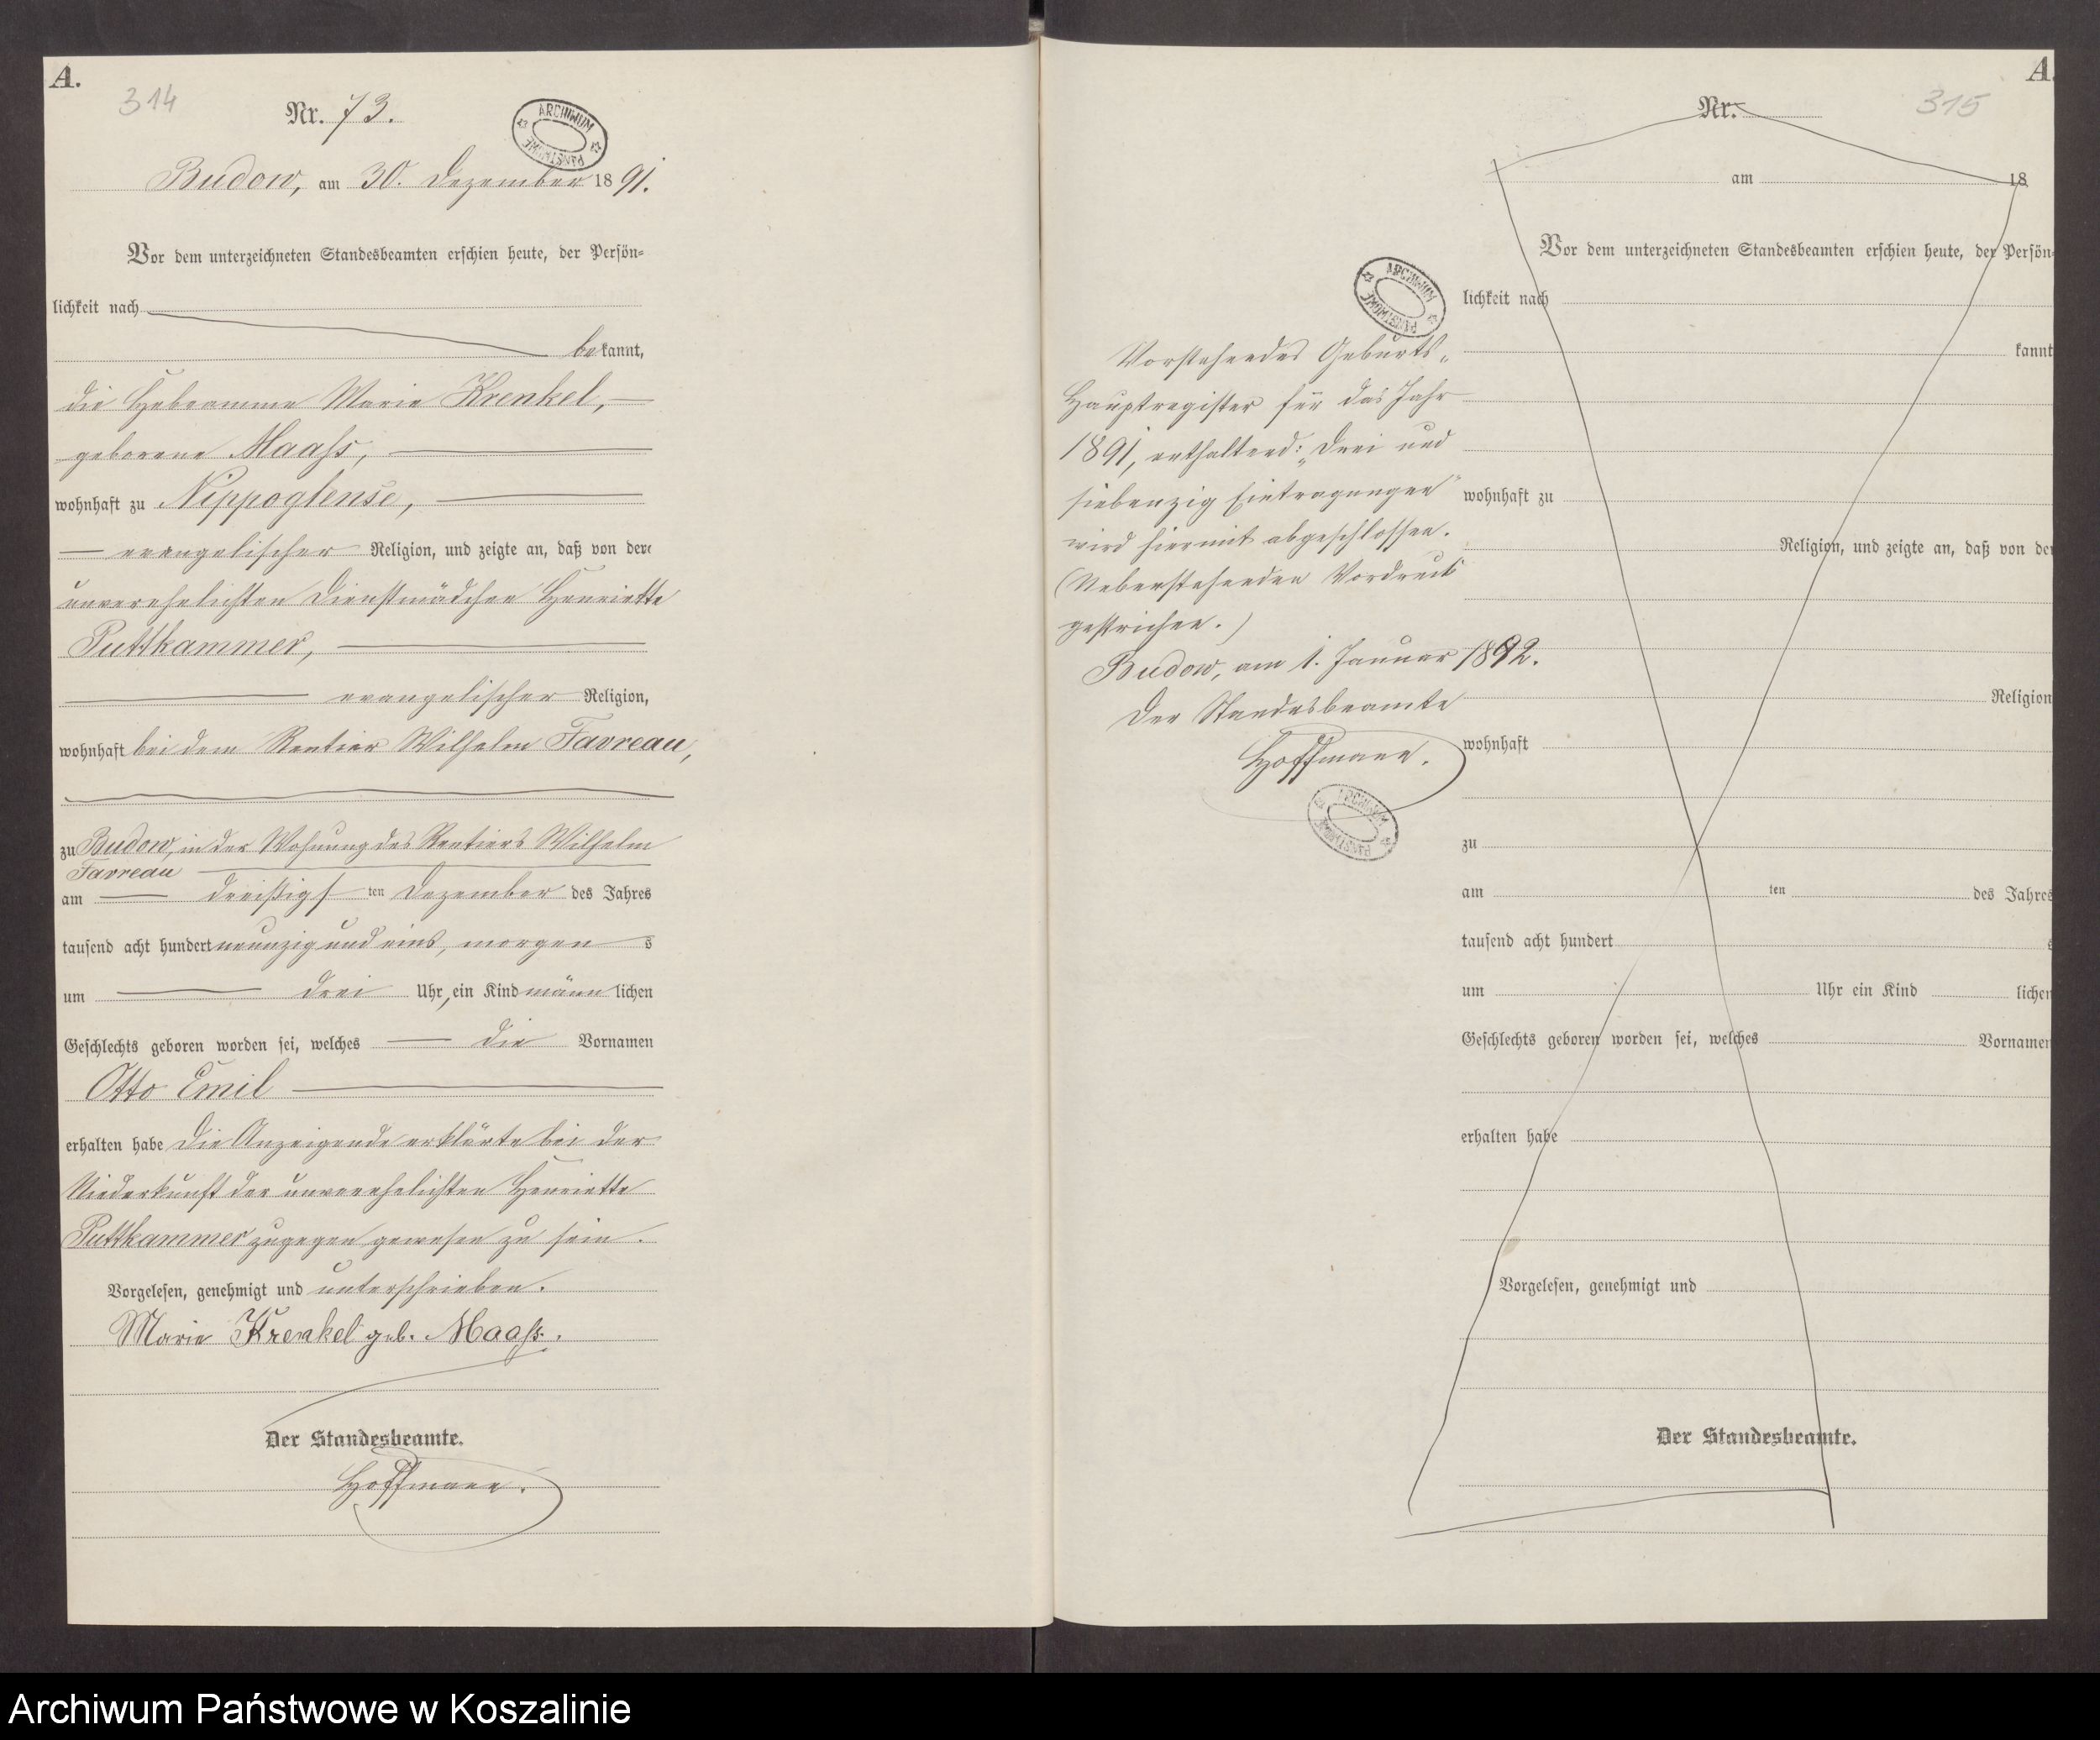 A.
314
Nr. 73.
ARCHIWUM PAŃSTWOWE
Budow, am 30. Dezember 1891.
Vor dem unterzeichneten Standesbeamten erschien heute, der Persön=
lichkeit nach
bekannt,
die Hebeamme Marie Krenkel,
geborene Maaß,
wohnhaft zu Nippoglense,
evangelischer Religion, und zeigte an, daß von der
unverehelichten Dienstmädchen Henriette
Puttkammer,
evangelischer Religion,
wohnhaft bei dem Rentier Wilhelm Favreau,
zu Budow, in der Wohnung des Rentiers Wilhelm
Favreau
am dreißigsten Dezember des Jahres
tausend acht hundert neunzig und eins, morgens
um drei Uhr, ein Kind männlichen
Geschlechts geboren worden sei, welches die Vornamen
Otto Emil
erhalten habe Die Anzeigende erklärte bei der
Niederkunft der unverehelichten Henriette
Puttkammer zugegen gewesen zu sein.
Vorgelesen, genehmigt und unterschrieben.
Marie Krenkel geb. Maaß.
Der Standesbeamte.
Hoffmann.
ARCHIWUM PAŃSTWOWE
Vorstehendes Geburts-
Hauptregister für das Jahr
1891, enthaltend: „Drei und
siebenzig Eintragungen"
wird hiermit abgeschlossen.
(Nebenstehenden Vordruck
gestrichen.)
Budow, am 1. Januar 1892.
Der Standesbeamte
Hoffmann.
ARCHIWUM PAŃSTWOWE
A.
315
Nr.
am 18
Vor dem unterzeichneten Standesbeamten erschien heute, der Persön
lichkeit nach
kannt
wohnhaft zu
Religion, und zeigte an, daß von der
Religion
wohnhaft
zu
am ten des Jahres
tausend acht hundert s
um Uhr ein Kind lichen
Geschlechts geboren worden sei, welches Vornamen
erhalten habe
Vorgelesen, genehmigt und
Der Standesbeamte.
Archiwum Państwowe w Koszalinie